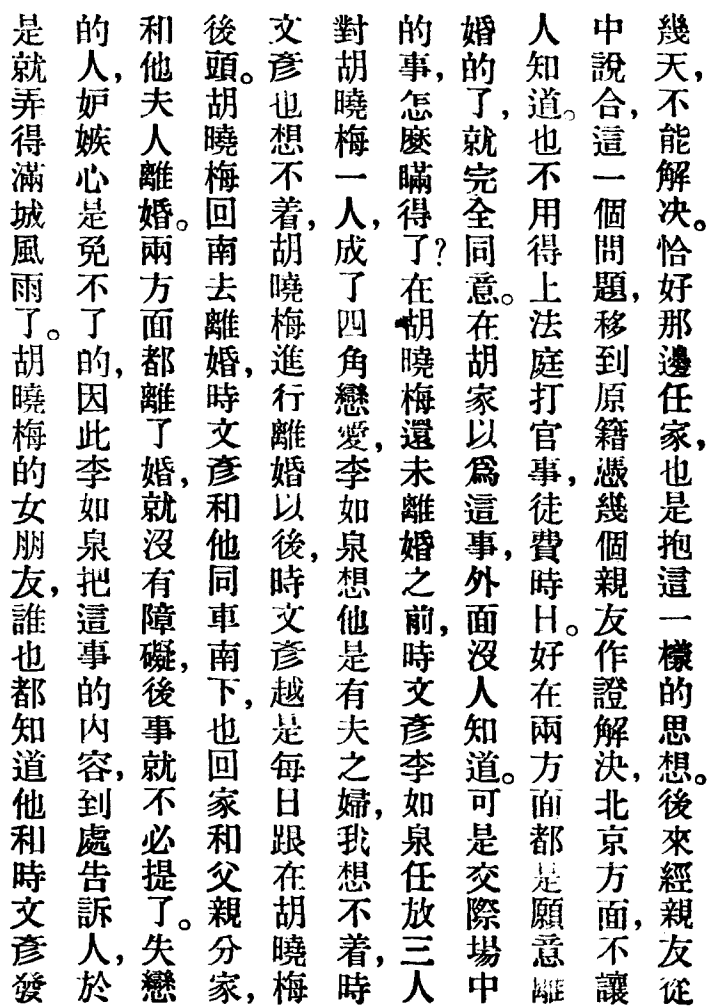 幾天，不能解決。恰好那邊任家，也是抱這一樣的思想。後來經親友從
中說合，這一個問題，移到原籍憑幾個親友作證解決，北京方面，不讓
人知道。也不用得上法庭打官事，徒費時日。好在兩方面都是願意離
婚的了，就完全同意。在胡家以爲這事，外面沒人知道。可是交際場中
的事，怎麽瞞得了？在胡曉梅還未離婚之前，時文彥李如泉任放三人
對胡曉梅一人，成了四角戀愛，李如泉想他是有夫之婦，我想不着，時
文彥也想不着，胡曉梅進行離婚以後，時文彥越是每日跟在胡曉梅
後頭。胡曉梅回南去離婚，時文彥和他同車南下，也回家和父親分家，
和他夫人離婚。兩方面都離了婚，就沒有障礙，後事就不必提了。失戀
的人，妒嫉心是免不了的，因此李如泉把這事的內容，到處告訴人，於
是就弄得滿城風雨了。胡曉梅的女朋友，誰也都知道他和時文彥發